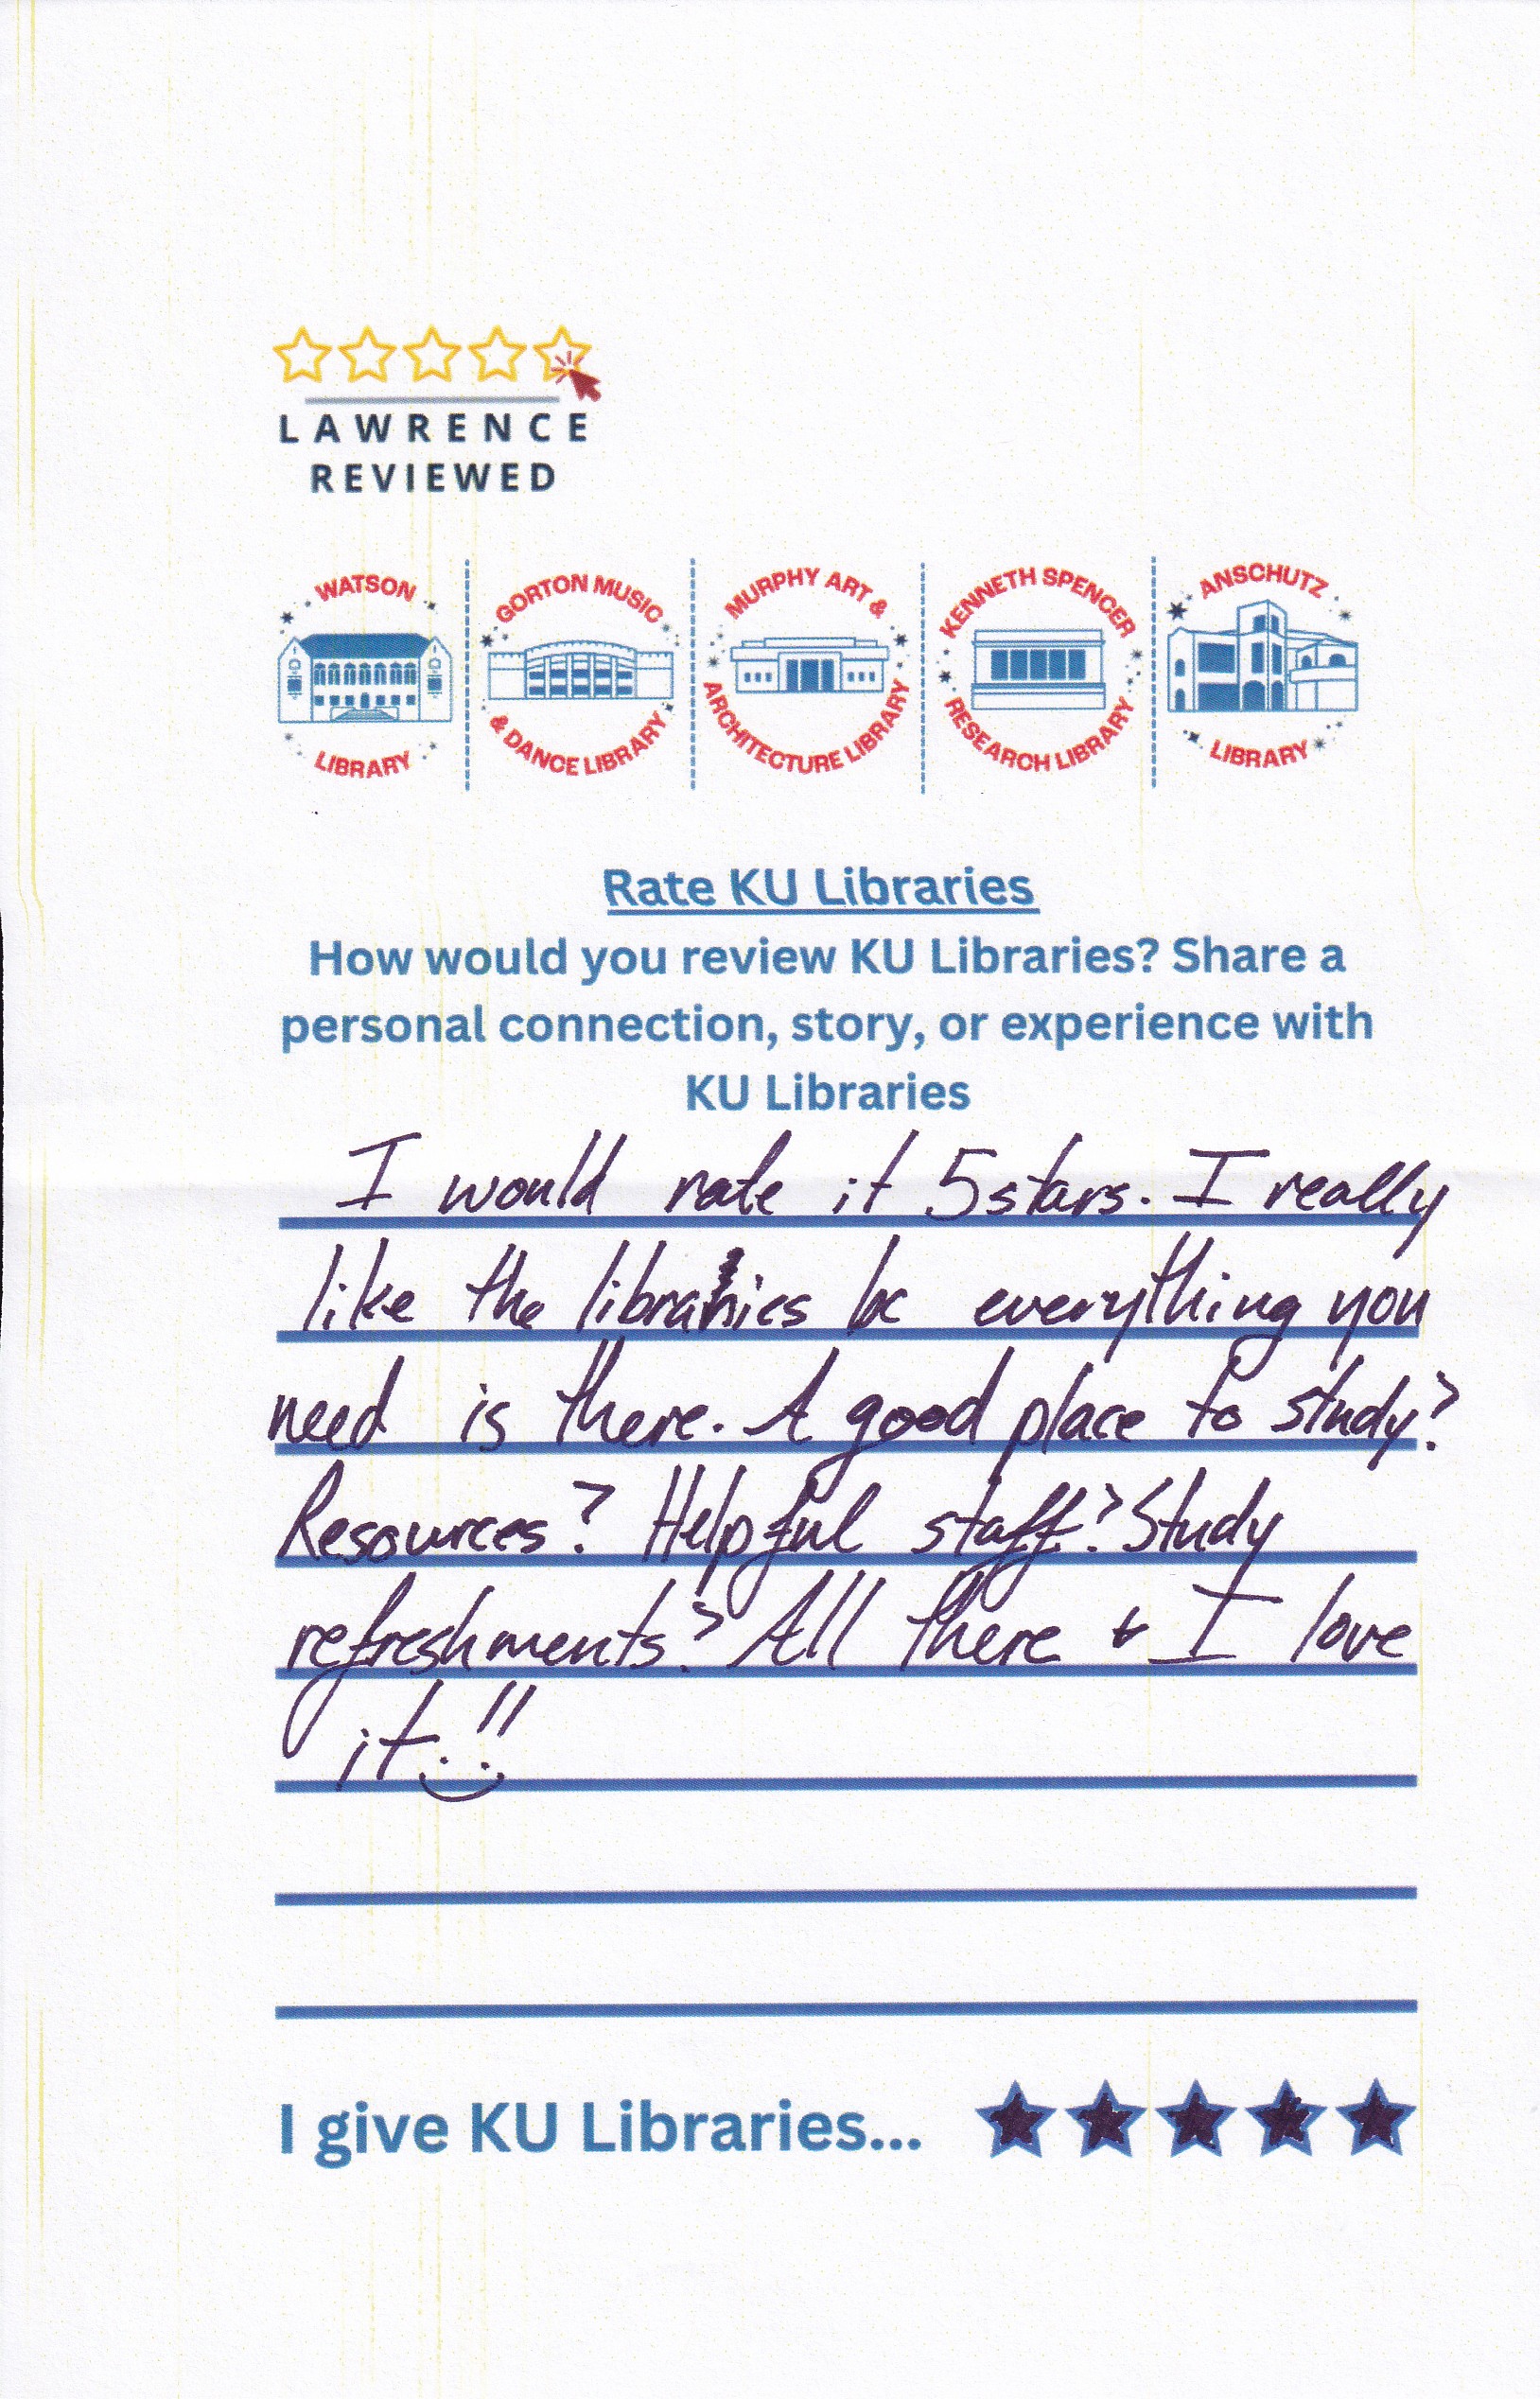 LAWRENCE
REVIEWED
WATSON
LIBRARY
GORTON MUSIC
& DANCE LIBRARY
MURPHY ART &
ARCHITECTURE LIBRARY
KENNETH SPENCER
RESEARCH LIBRARY
ANSCHUTZ
LIBRARY
Rate KU Libraries
How would you review KU Libraries? Share a
personal connection, story, or experience with
KU Libraries
I would rate it 5 stars. I really
like the libraries bc everything you
need is there. A good place to study?
Resources? Helpful staff? Study
refreshments? All there & I love
it!!
I give KU Libraries...